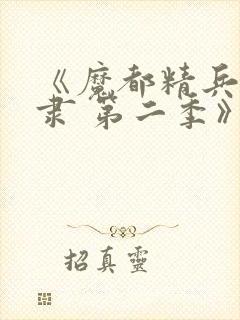 《魔都精兵
隶 第二季》
招真靈